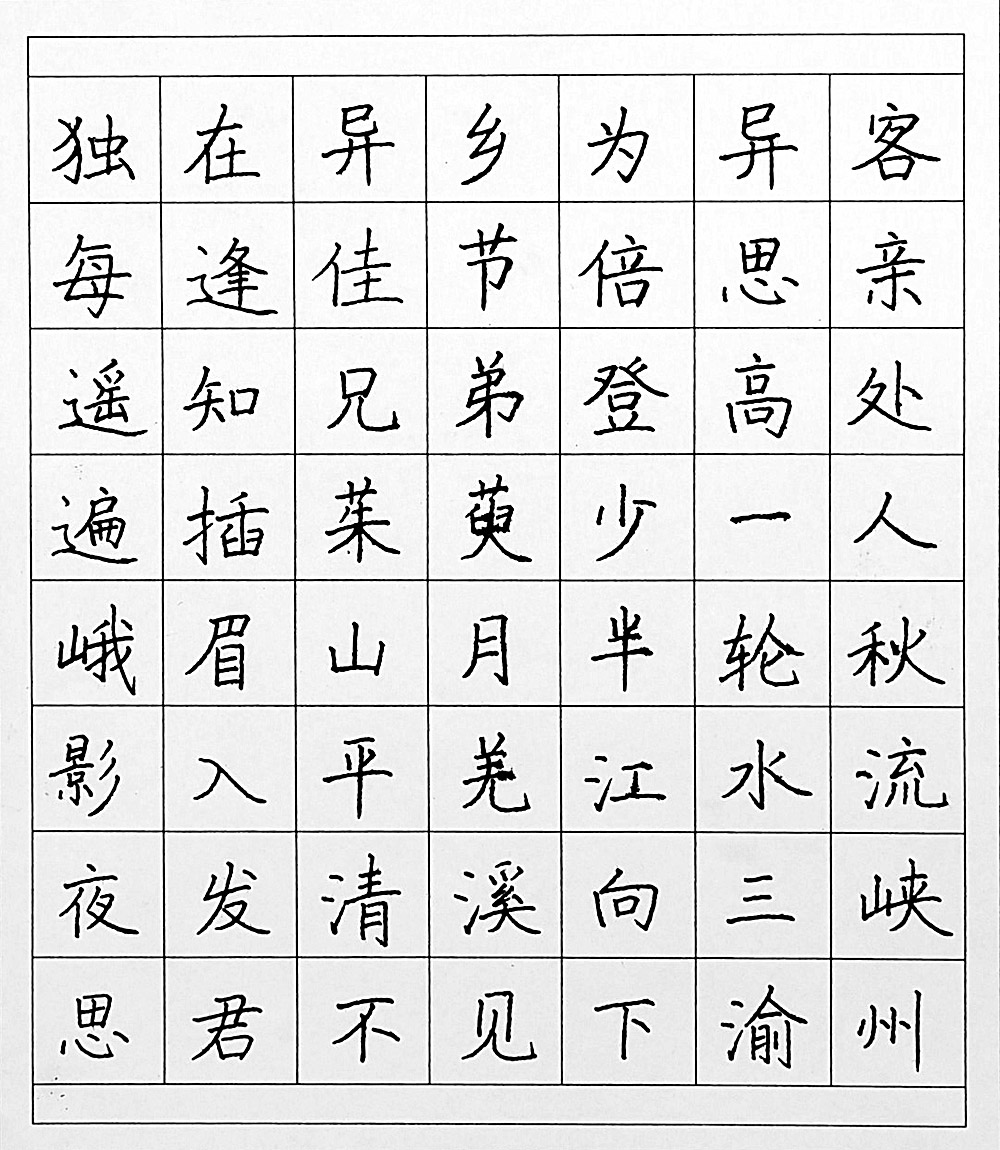 独在异乡为异客
每逢佳节倍思亲
遥知兄弟登高处
遍插茱萸少一人
峨眉山月半轮秋
影入平羌江水流
夜发清溪向三峡
思君不见下渝州